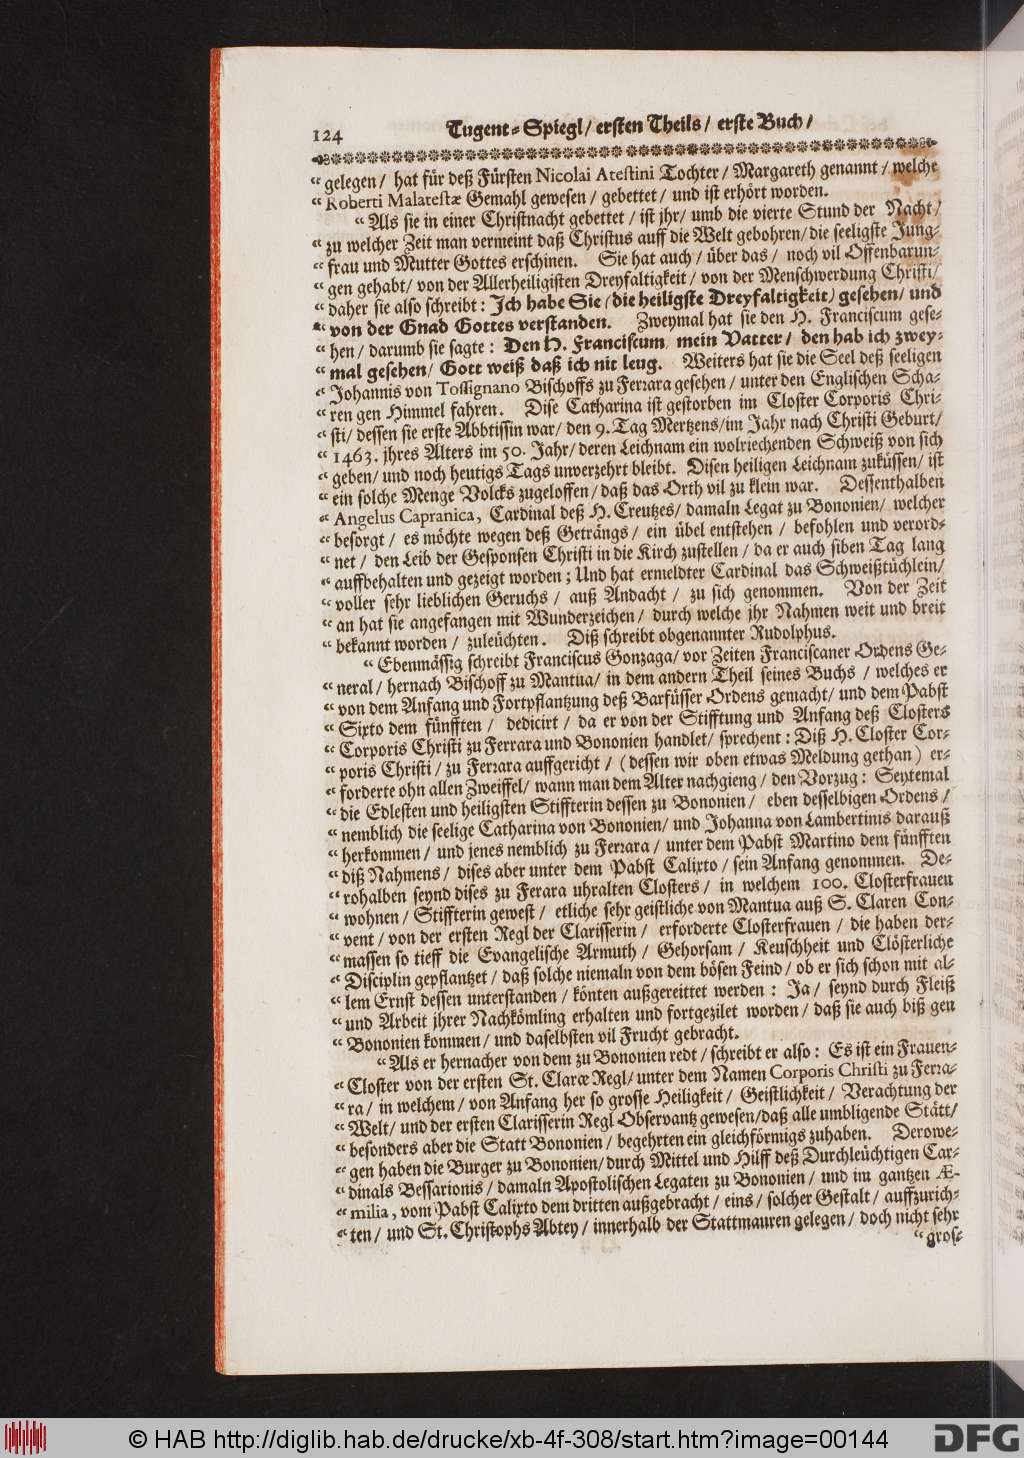 124 Tugent-Spiegl/ ersten Theils/ erste Buch/
“ gelegen/ hat für deß Fürsten Nicolai Atestini Tochter/ Margareth genannt/ welche
“ Roberti Malatestæ Gemahl gewesen/ gebettet/ und ist erhört worden.
“ Als sie in einer Christnacht gebettet/ ist jhr/ umb die vierte Stund der Nacht/
“ zu welcher Zeit man vermeint daß Christus auff die Welt gebohren/ die seeligste Jung-
“ frau und Mutter Gottes erschinen. Sie hat auch/ über das/ noch vil Offenbarun-
“ gen gehabt/ von der Allerheiligisten Dreyfaltigkeit/ von der Menschwerdung Christi/
“ daher sie also schreibt: Ich habe Sie (die heiligste Dreyfaltigkeit) gesehen/ und
“ von der Gnad Gottes verstanden. Zweymal hat sie den H. Franciscum gese-
“ hen/ darumb sie sagte: Den H. Franciscum mein Vatter/ den hab ich zwey-
“ mal gesehen/ Gott weiß daß ich nit leug. Weiters hat sie die Seel deß seeligen
“ Johannis von Tossignano Bischoffs zu Ferrara gesehen/ unter den Englischen Scha-
“ ren gen Himmel fahren. Dise Catharina ist gestorben im Closter Corporis Chri-
“ sti/ dessen sie erste Abbtissin war/ den 9. Tag Mertzens/ im Jahr nach Christi Geburt/
“ 1463. jhres Alters im 50. Jahr/ deren Leichnam ein wolriechenden Schweiß von sich
“ geben/ und noch heutigs Tags unverzehrt bleibt. Disen heiligen Leichnam zuküssen/ ist
“ ein solche Menge Volcks zugeloffen/ daß das Orth vil zu klein war. Dessenthalben
“ Angelus Capranica, Cardinal deß H. Creutzes/ damaln Legat zu Bononien/ welcher
“ besorgt/ es möchte wegen deß Geträngs/ ein übel entstehen/ befohlen und verord-
“ net/ den Leib der Gesponsen Christi in die Kirch zustellen/ da er auch siben Tag lang
“ auffbehalten und gezeigt worden; Und hat ermeldter Cardinal das Schweißtüchlein/
“ voller sehr lieblichen Geruchs/ auß Andacht/ zu sich genommen. Von der Zeit
“ an hat sie angefangen mit Wunderzeichen/ durch welche jhr Nahmen weit und breit
“ bekannt worden/ zuleüchten. Diß schreibt obgenannter Rudolphus.
“ Ebenmässig schreibt Franciscus Gonzaga/ vor Zeiten Franciscaner Ordens Ge-
“ neral/ hernach Bischoff zu Mantua/ in dem andern Theil seines Buchs/ welches er
“ von dem Anfang und Fortpflantzung deß Barfüsser Ordens gemacht/ und dem Pabst
“ Sixto dem fünfften/ dedicirt/ da er von der Stifftung und Anfang deß Closters
“ Corporis Christi zu Ferrara und Bononien handlet/ sprechent: Diß H. Closter Cor-
“ poris Christi/ zu Ferrara auffgericht/ (dessen wir oben etwas Meldung gethan) er-
“ forderte ohn allen Zweiffel/ wann man dem Alter nachgieng/ den Vorzug: Seytemal
“ die Edlesten und heiligsten Stiffterin dessen zu Bononien/ eben desselbigen Ordens/
“ nemblich die seelige Catharina von Bononien/ und Johanna von Lambertinis darauß
“ herkommen/ und jenes nemblich zu Ferrara/ unter dem Pabst Martino dem fünfften
“ diß Nahmens/ dises aber unter dem Pabst Calixto/ sein Anfang genommen. De-
“ rohalben seynd dises zu Ferara uhralten Closters/ in welchem 100. Closterfrauen
“ wohnen/ Stiffterin gewest/ etliche sehr geistliche von Mantua auß S. Claren Con-
“ vent/ von der ersten Regl der Clarisserin/ erforderte Closterfrauen/ die haben der-
“ massen so tieff die Evangelische Armuth/ Gehorsam/ Keuschheit und Clösterliche
“ Disciplin gepflantzet/ daß solche niemaln von dem bösen Feind/ ob er sich schon mit al-
“ lem Ernst dessen unterstanden/ könten außgereittet werden: Ja/ seynd durch Fleiß
“ und Arbeit jhrer Nachkömling erhalten und fortgezilet worden/ daß sie auch biß gen
“ Bononien kommen/ und daselbsten vil Frucht gebracht.
“ Als er hernacher von dem zu Bononien redt/ schreibt er also: Es ist ein Frauen-
“ Closter von der ersten St. Claræ Regl/ unter dem Namen Corporis Christi zu Ferra-
“ ra/ in welchem/ von Anfang her so grosse Heiligkeit/ Geistlichkeit/ Verachtung der
“ Welt/ und der ersten Clarisserin Regl Observantz gewesen/ daß alle umbligende Stätt/
“ besonders aber die Statt Bononien/ begehrten ein gleichförmigs zuhaben. Derowe-
“ gen haben die Burger zu Bononien/ durch Mittel und Hilff deß Durchleüchtigen Car-
“ dinals Bessarionis/ damaln Apostolischen Legaten zu Bononien/ und im gantzen Æ-
“ milia, vom Pabst Calixto dem dritten außgebracht/ eins/ solcher Gestalt/ auffzurich-
“ ten/ und St. Christophs Abtey/ innerhalb der Stattmauren gelegen/ doch nicht sehr
“ gros-
© HAB http://diglib.hab.de/drucke/xb-4f-308/start.htm?image=00144
DFG